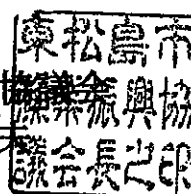 東松島市
協議会
振興協
議会長之印